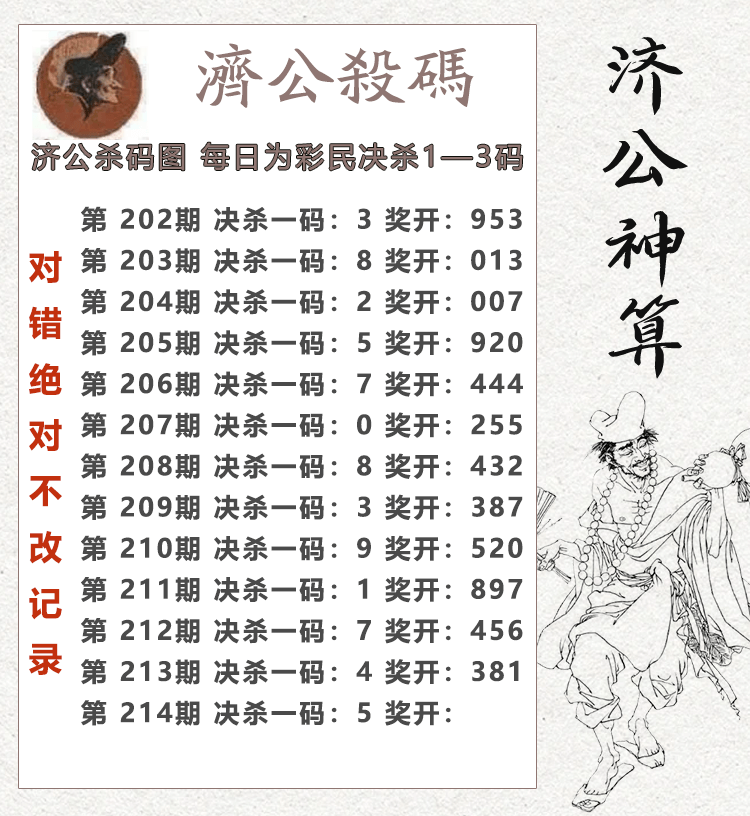 濟公殺碼
济公杀码图 每日为彩民决杀1—3码
第 202期 决杀一码：3 奖开：953
第 203期 决杀一码：8 奖开：013
第 204期 决杀一码：2 奖开：007
第 205期 决杀一码：5 奖开：920
第 206期 决杀一码：7 奖开：444
第 207期 决杀一码：0 奖开：255
第 208期 决杀一码：8 奖开：432
第 209期 决杀一码：3 奖开：387
第 210期 决杀一码：9 奖开：520
第 211期 决杀一码：1 奖开：897
第 212期 决杀一码：7 奖开：456
第 213期 决杀一码：4 奖开：381
第 214期 决杀一码：5 奖开：
对错绝对不改记录
济公神算